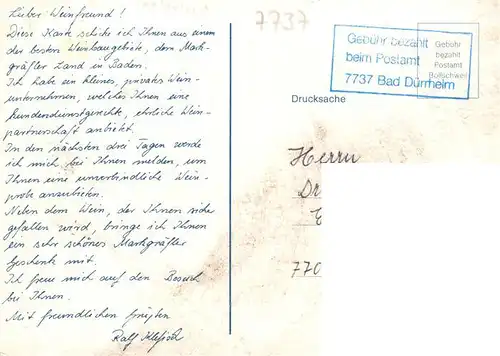 Lieber Weinfreund!
Diese Karte schicke ich Ihnen aus einem
der besten Weinbaugebiete, dem Mark-
gräfler Land in Baden.
Ich habe ein kleines, privates Wein-
unternehmen, welches Ihnen eine
kundendienstgerechte, ehrliche Wein-
partnerschaft anbietet.
In den nächsten drei Tagen werde
ich mich bei Ihnen melden, um
Ihnen eine unverbindliche Wein-
probe anzubieten.
Neben dem Wein, der Ihnen sicher
gefallen wird, bringe ich Ihnen
ein sehr schönes Markgräfler
Geschenk mit.
Ich freue mich auf den Besuch
bei Ihnen.
Mit freundlichen Grüßen
Ralf
7737
Gebühr bezahlt
beim Postamt
7737 Bad Dürrheim
Gebühr
bezahlt
Postamt
Bollschweil
Drucksache
Herrn
Dr
770